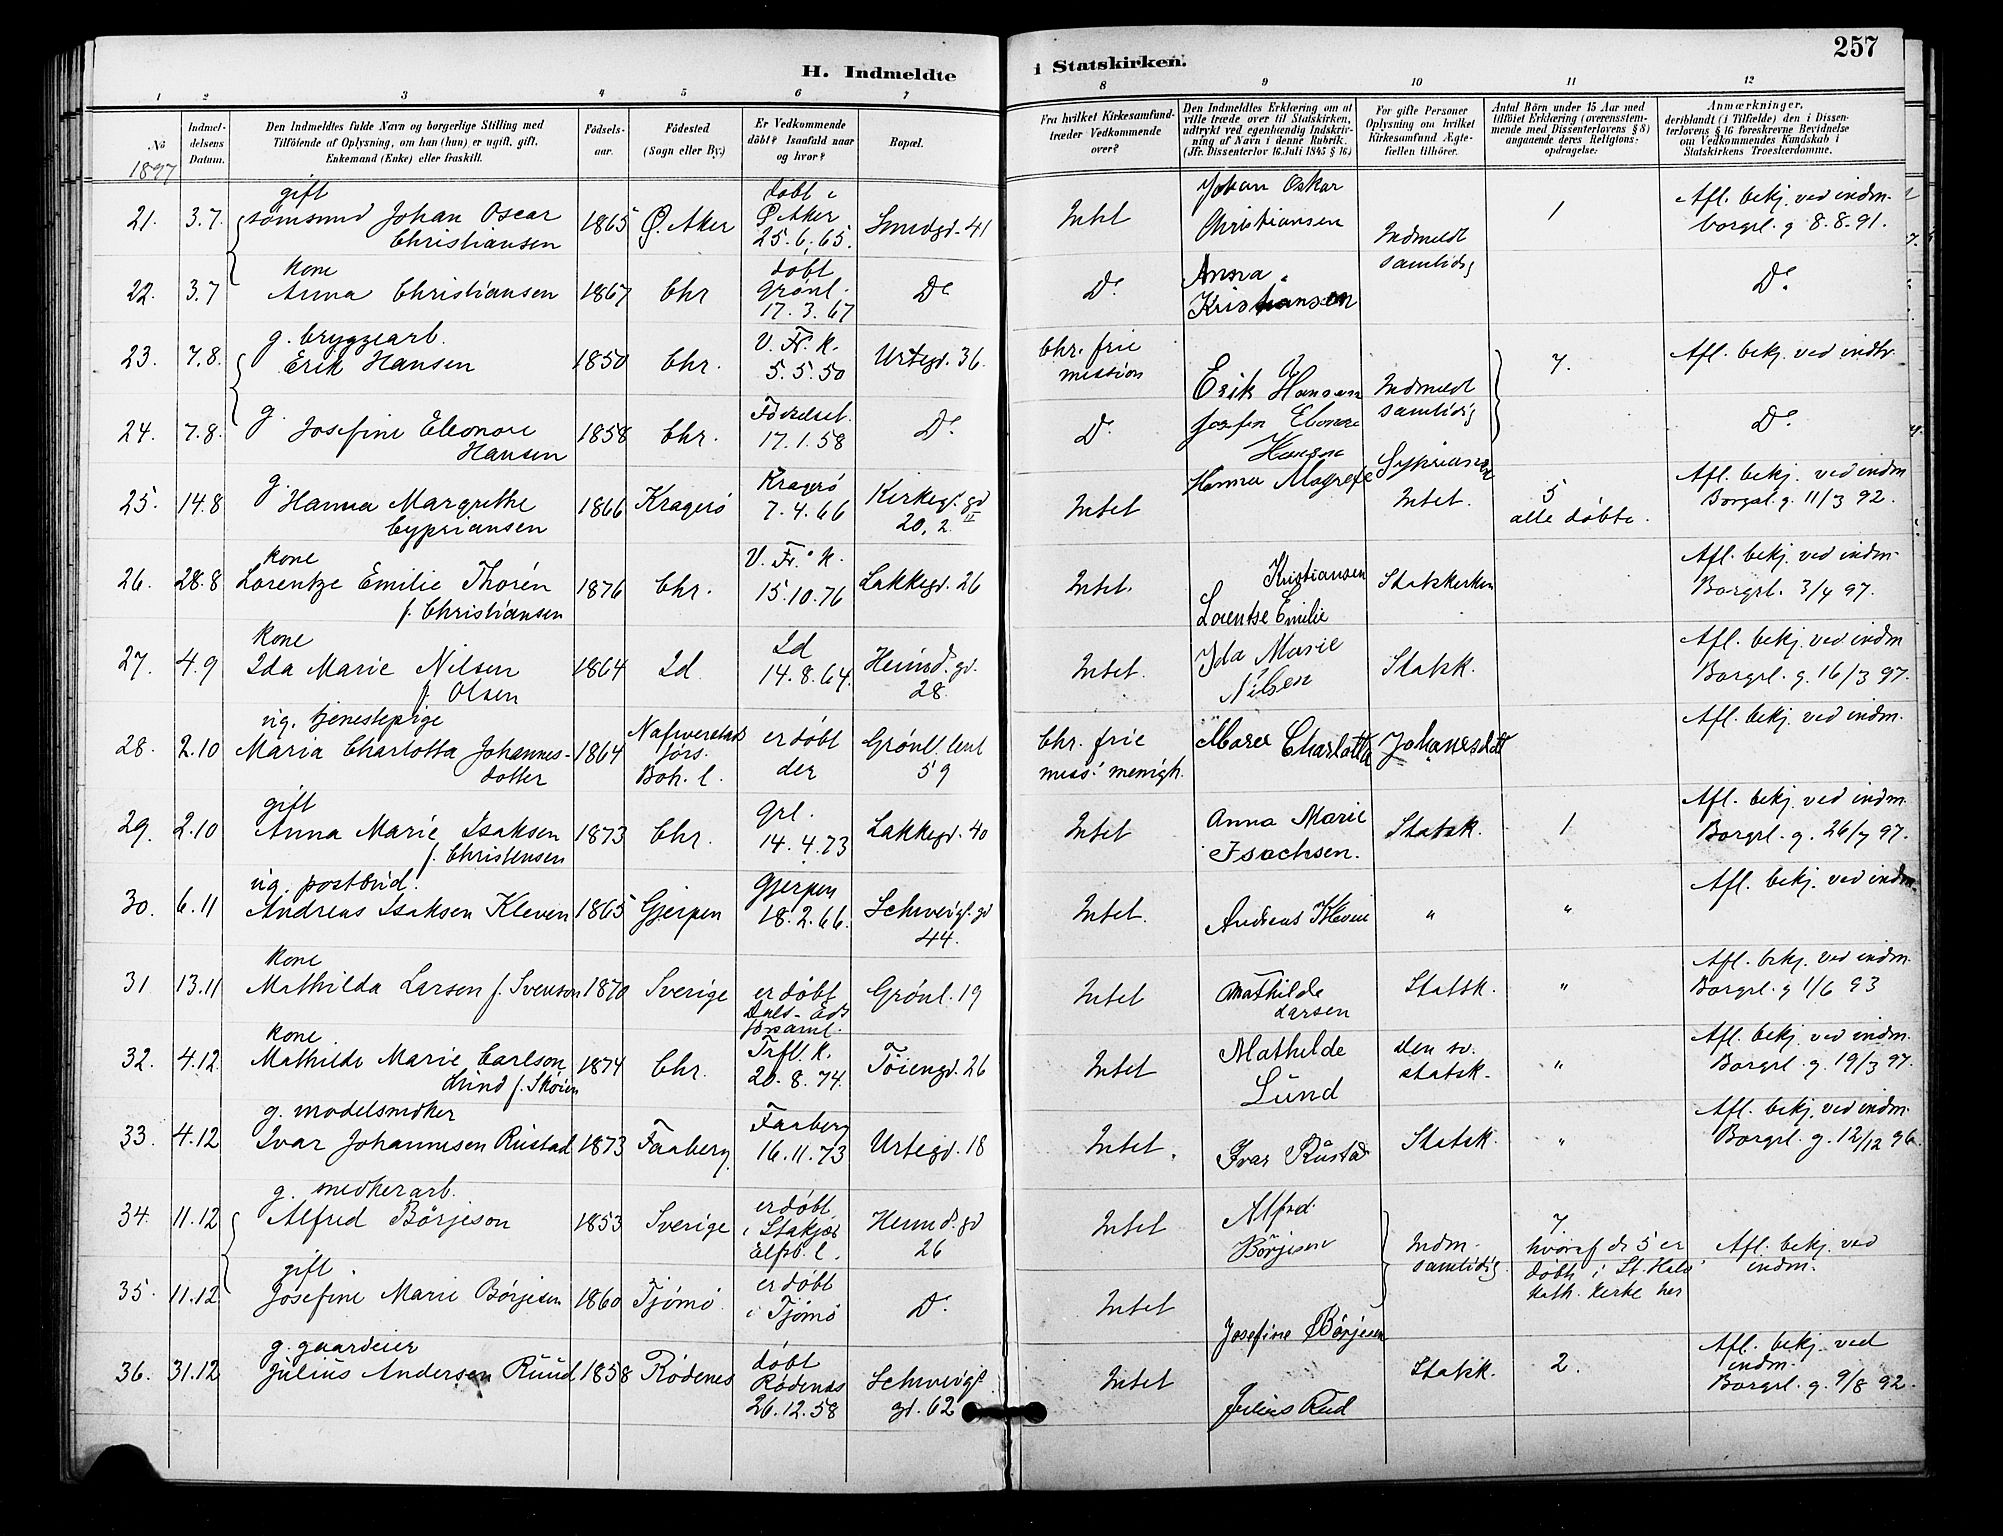 257
H. Indmeldte i Statskirken.
1 2 3 4 5 6 7 8 9 10 11 12
No
1897
Indmel-
delsens
Datum.
Den Indmeldtes fulde Navn og borgerlige Stilling med
Tilföiende af Oplysning, om han (hun) er ugift, gift,
Enkemand (Enke) eller fraskilt.
Födsels-
aar.
Födested
(Sogn eller By.)
Er Vedkommende
döbt? Isaafald naar
og hvor?
Bopæl.
Fra hvilket Kirkesamfund
træder Vedkommende
over?
Den Indmeldtes Erklæring om at
ville træde over til Statskirken,
udtrykt ved egenhændig Indskriv-
ning af Navn i denne Rubrik.
(Jfr. Dissenterlov 16 Juli 1845 § 16)
For gifte Personer
Oplysning om hvilket
Kirkesamfund Ægte-
fællen tilhörer.
Antal Börn under 15 Aar med
tilföiet Erklæring (overensstem-
mende med Dissenterlovens § 8)
angaaende deres Religions-
opdragelse:
Anmærkninger,
deriblandt (i Tilfælde) den i Dissen-
terlovens § 16 foreskrevne Bevidnelse
om Vedkommendes Kundskab i
Statskirkens Troeslærdomme.
gift
21. 3.7. tömsmed Johan Oscar
Christiansen
1865 Ø. Aker
döbt i
Ø. Aker
25.6.65.
Smedgd. 41
Intet
Johan Oskar
Christiansen
Indmeldt
samtidig
1
Afl. bekj. ved indm.
borgrl. g 8.8.91.
kone
22. 3.7 Anna Christiansen 1867 Chr
döbt
Grönl.
17.3.67
Do
Do
Anna
Kristiansen
Do
g. bryggearb.
23. 7.8. Erik Hansen 1850 Chr.
V. Fr. K.
5.5.50
Urtegd. 36.
Chr. frie
mission
Erik Hansen
Indmeldt
samtidig
7.
Afl. bekj. ved indtr.
g.
24. 7.8. Josefine Eleonore
Hansen
1858 Chr.
Födselsst.
17.1.58
Do
Do
Josefin Elonore
Hansen
Do
g.
25. 14.8 Hanna Margrethe
Cypriansen
1866 Kragerö
Kragerö
7.4.66
Kirkegd. gd
20, 2 II
Intet
Hanna Magrete Sypriansen
Intet.
5
alle döbte.
Afl. bekj. ved indm
Borgrl. g. 11/3 92.
kone
26. 28.8 Lorentze Emilie Thorén
f. Christiansen
1876 Chr.
V. Fr. K.
15.10.76
Lakkegd. 26
Intet.
Kristiansen
Lorentse Emilie
Statskirken
Afl. bekj. ved indm.
Borgrl. 3/4 97.
kone
27. 4.9 Ida Marie Nilsen
f. Olsen
1864 Id
Id
14.8.64.
Heimd. gd.
28.
Intet.
Ida Marie
Nilsen
Statsk.
Afl. bekj. ved indm
Borgrl. g. 16/3 97.
ug. tjenestepige
28. 2.10 Maria Charlotta Johannes-
dotter
1864
Nafverstad
förs.
Boh. l.
er döbt
der
Grönl. leret
59
Chr. frie
miss. menigh.
Maria Charlotta Johanesdott
Afl. bekj. ved indm.
gift
29. 2.10 Anna Marie Isaksen
f. Christensen
1873 Chr.
Grl.
14.4.73
Lakkegd. 40
Intet
Anna Marie
Isachsen.
Statsk.
1
Afl. bekj. ved indm.
Borgrl. g. 26/7 97.
ug. postbud.
30. 6.11 Andreas Isaksen Kleven 1865 Gjerpen
Gjerpen
18.2.66.
Schweigd. gd
44.
Intet.
Andreas Kleven
"
"
Afl. bekj. ved indm.
kone
31. 13.11 Mathilda Larsen f. Svenson 1870 Sverige
er döbt
Dals-Eds
församl.
Grönl. 19
Intet
Mathilde
Larsen
Statsk.
"
Afl. bekj. ved indm.
Borgrl. g 1/6 93
kone
32. 4.12. Mathilde Marie Carlson
Lund f. Sköien
1874 Chr.
Trfl. K.
20.8.74.
Töiengd. 26
Intet
Mathilde
Lund
den sv.
statsk.
"
Afl. bekj. ved indm.
Borgrl. g. 19/3 97.
g. modelsnedker
33. 4.12 Ivar Johannesen Rustad 1873 Faaberg
Faaberg
16.11.73
Urtegd. 18
Intet.
Ivar Rustad
Statsk.
"
Afl. bekj. ved indm.
Borgrl. g. 12/12 96.
g. snedkerarb.
34. 11.12 Alfred Börjeson 1853 Sverige
er döbt
i
Elfsb. l.
Heimd. gd
26
Intet
Alfred
Börjesen
Indm.
samtidig
7.
hvoraf de 5 er
döbt i St. Halv.
kath. kirke her
Afl. bekj. ved
indm.
gift
35. 11.12. Josefine Marie Börjesen 1860 Tjömö
er döbt
i Tjömö
Do
Intet
Josefine Börjesen
g. gaardeier
36. 31.12 Julius Andersen Ruud 1858 Rödenes
döbt
Rödenes
26.12.58
Schweigd.
gd. 62
Intet
Julius Rud
Statsk.
2.
Afl. bekj. ved
indm.
Borgrl. g. 9/8 92.